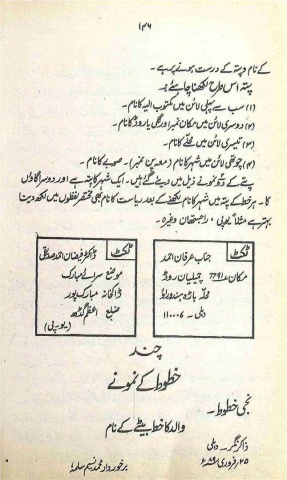 ۱۳۶
کے نام و پتہ کے درست ہونے پر ہے۔
پتہ اس طرح لکھنا چاہئے:
(۱) سب سے پہلی لائن میں مکتوب الیہ کا نام۔
(۲) دوسری لائن میں مکان نمبر اور گلی یا روڈ کا نام۔
(۳) تیسری لائن میں محلّے کا نام۔
(۴) چوتھی لائن میں شہر کا نام (معہ پن نمبر)۔ صوبے کا نام۔
پتے کے دو نمونے ذیل میں دیئے گئے ہیں۔ ایک شہر کا پتہ ہے اور دوسرا گاؤں
کا۔ ہر خط کے پتہ میں شہر کا نام لکھنے کے بعد ریاست کا نام بھی مختصر لفظوں میں لکھ دینا
بہتر ہے مثلاً یوپی، راجستھان وغیرہ۔
ٹکٹ
جناب عرفان احمد
مکان ۷۷۹۱ چمیلیان روڈ
محلّہ باڑہ ہندو راؤ
دہلی - ۱۱۰۰۰۶
ٹکٹ
ڈاکٹر فیضان احمد صدیقی
موضع سرائے مبارک
ڈاکخانہ مبارک پور
ضلع اعظم گڈھ
(یو-پی)
چند
خطوط کے نمونے
نجی خطوط۔
والد کا خط بیٹے کے نام
ذاکر نگر۔ دہلی
۲۵؍فروری ۸۹ء
برخوردار محمد نسیم سلمہٗ!